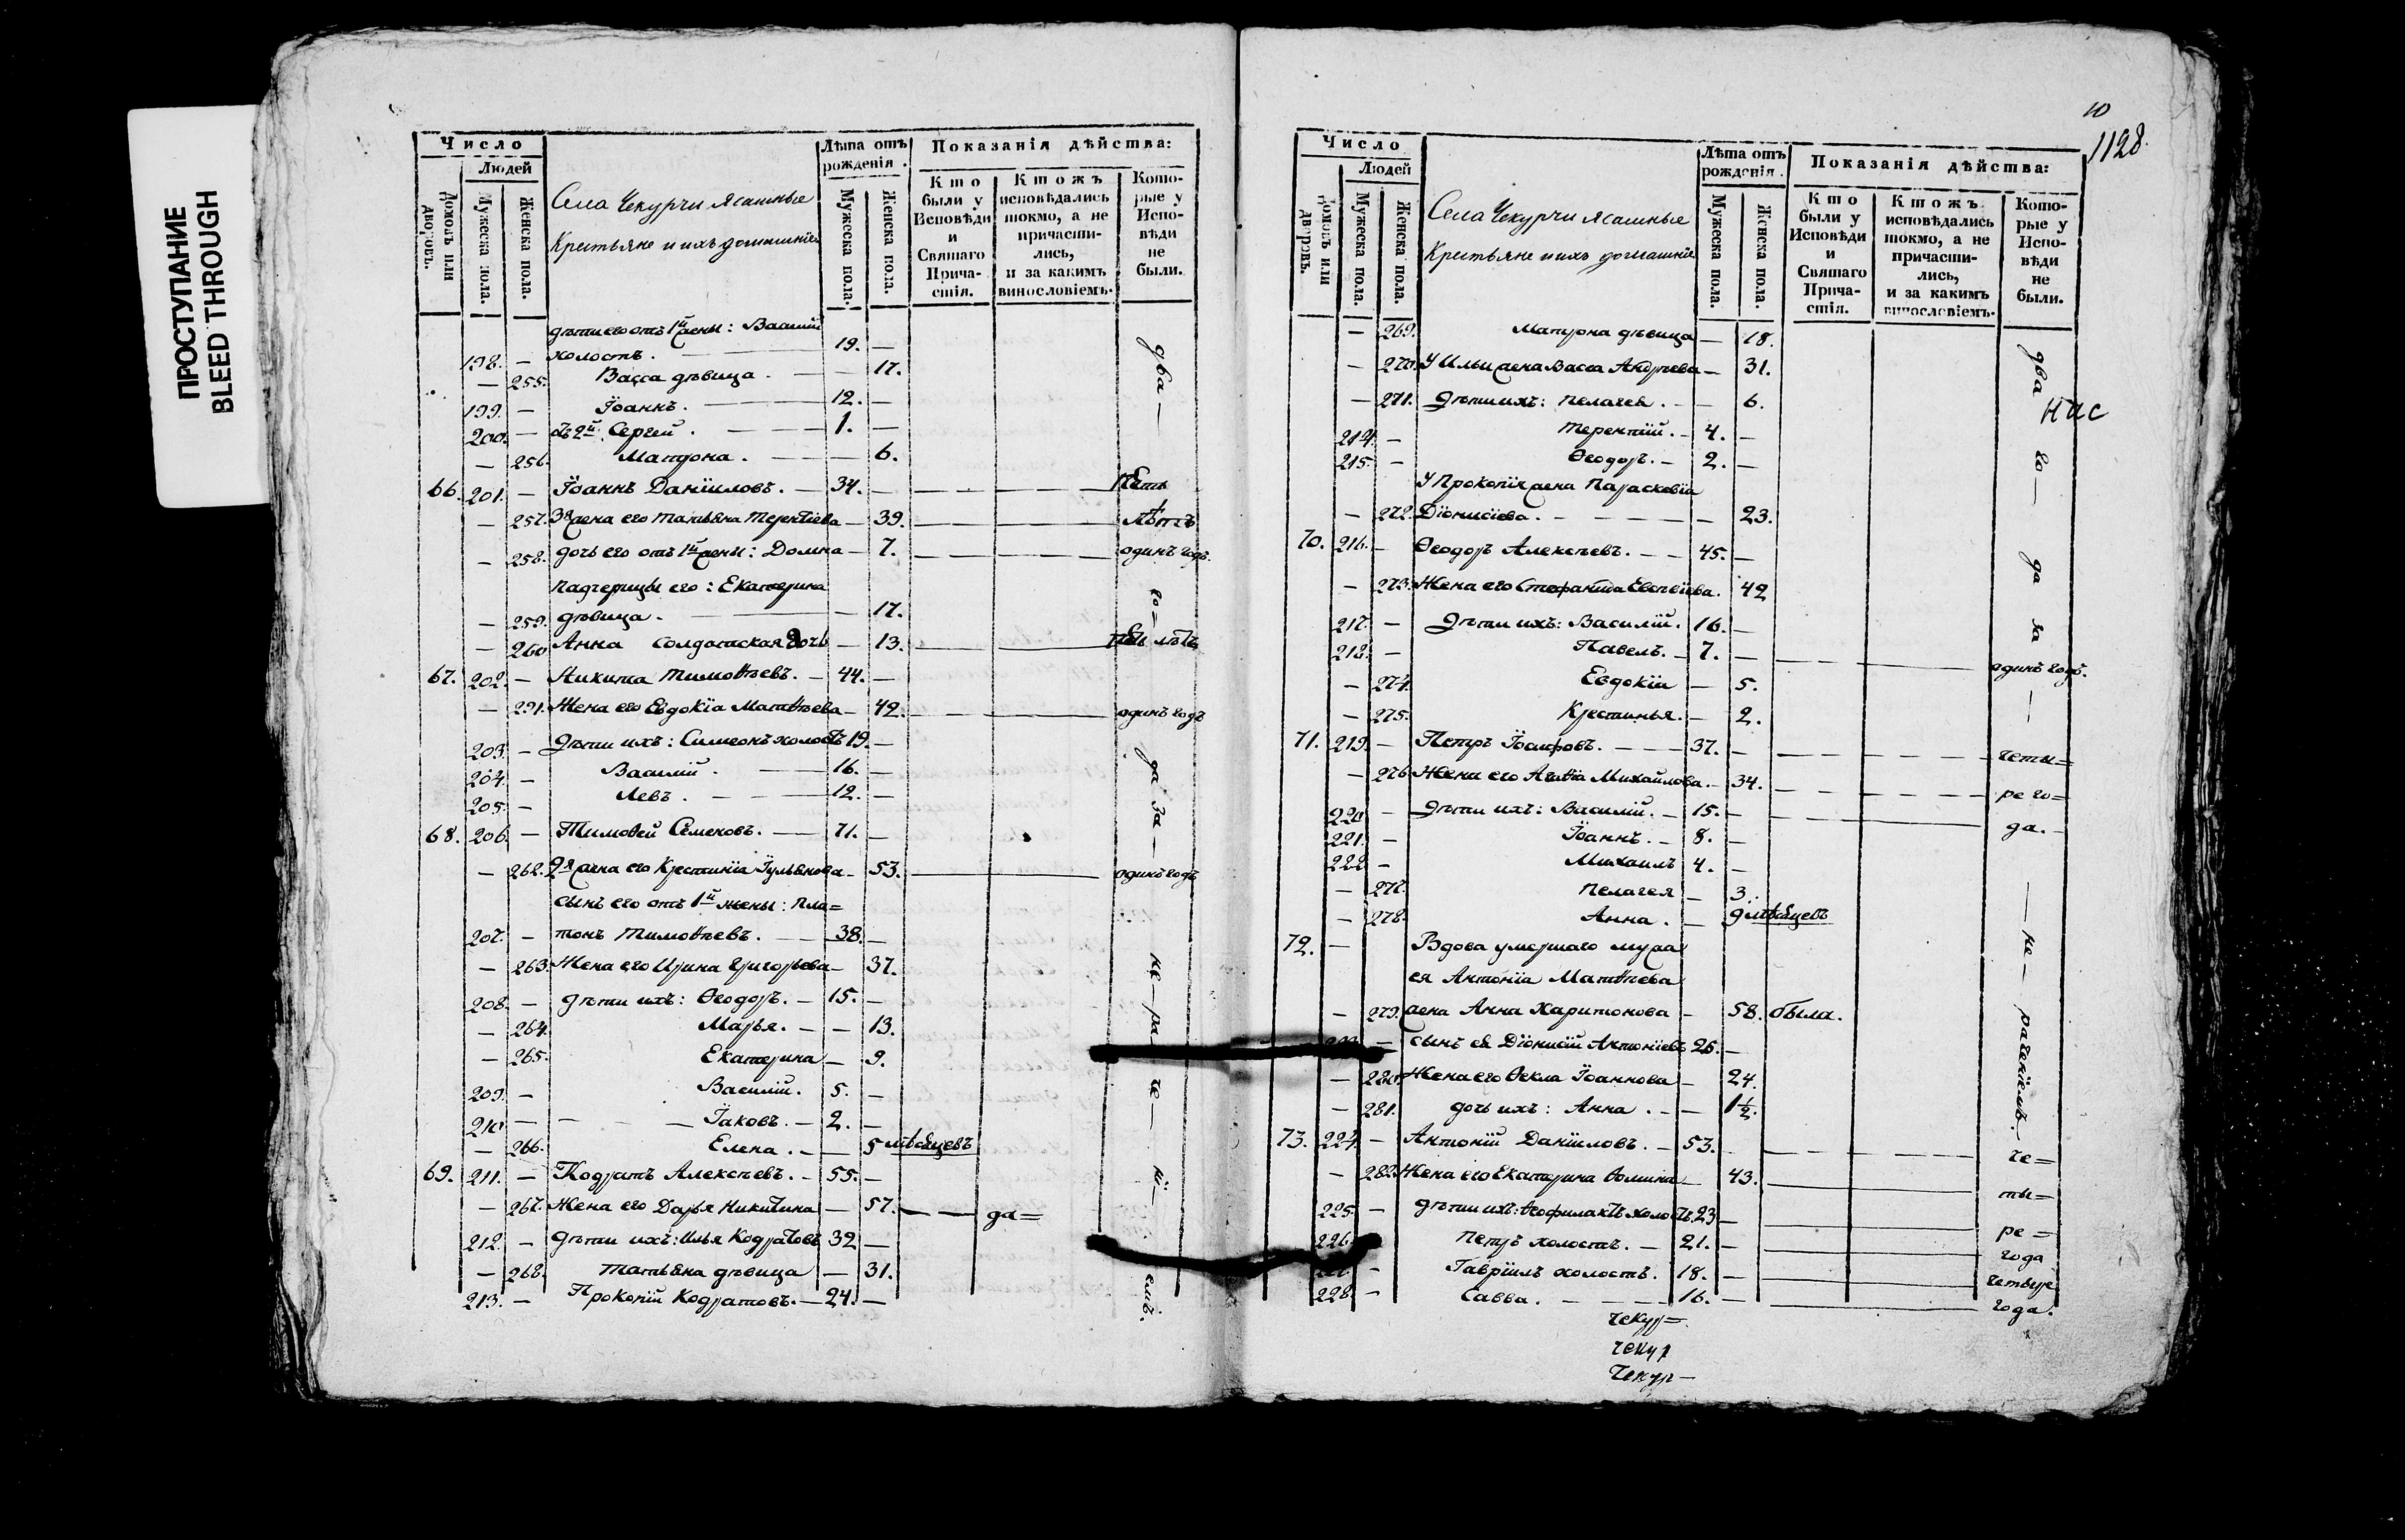 ПРОСТУПАНИЕ
BLEED THROUGH
Число
Людей
Домовъ или дворовъ.
Мужеска пола.
Женска пола.
Села Чекурчи Ясашныя
Крестьяне и ихъ домашнiе
Лѣта отъ рожденiя.
Мужеска пола.
Женска пола.
Показанiя дѣйства:
Кто были у Исповѣди и Святаго Прича-стiя.
Ктожъ исповѣдались токмо, а не причасти-лись, и за какимъ винословiемъ.
Кото-рые у Испо-вѣди не были.
дѣти его отъ 1й жены: Василiй
198. — холостъ. — 19. —
— 255. Васса дѣвица. — — 17.
199. — Iоаннъ. — 12. —
200. — отъ 2й Сергей. — 1. —
— 256. Матрона. — — 6.
66. 201. — Iоаннъ Данiиловъ. — 34. — — — пять
— 257. 3я жена его Татьяна Терентiева — 39. — — лѣтъ
— 258. дочь его отъ 1й жены: Домна — 7. — — одинъ годъ.
Падчерицы его: Екатерина
— 259. дѣвица. — — 17.
— 260 Анна солдатская дочь — 13. — — пять лѣтъ
67. 202. — Никита Тимоѳѣевъ. — 44. —
— 291. Жена его Евдокiа Матѳѣева — 42. — — одинъ годъ
203. — Дѣти ихъ: Симеонъ холостъ 19. —
204. — Василiй. — 16. —
205. — Левъ. — 12. —
68. 206. — Тимоѳей Семеновъ. — 71. —
— 262. 2я жена его Крестинiа Iульянова — 53. — — одинъ годъ
сынъ его отъ 1й жены: Пла=
207. — тонъ Тимоѳѣевъ. — 38. —
— 263. Жена его Ирина Григорьева — 37.
208. — дѣти ихъ: Ѳеодоръ. — 15. —
— 264. Марья. — — 13.
— 265. Екатерина — 9.
209. — Василiй. 5. —
210 — — — Iаковъ. — 2. —
— 266. Елена. — — 5 мѣсяцевъ
69. 211. — Кодратъ Алексѣевъ. — 55. —
— 267. Жена его Дарья Никитина — 57. — — да=
212. — Дѣти ихъ: Илья Кодратовъ 32 —
— 268. Татьяна дѣвица — 31.
213. — Прокопiй Кодратовъ. — 24. —
два —
го =
да за —
не — ра
че —
нi —
емъ.
10
1128.
Число
Людей
Домовъ или дворовъ.
Мужеска пола.
Женска пола.
Села Чекурчи Ясашныя
Крестьяне и ихъ домашнiе
Лѣта отъ рожденiя.
Мужеска пола.
Женска пола.
Показанiя дѣйства:
Кто были у Исповѣди и Святаго Прича-стiя.
Ктожъ исповѣдались токмо, а не причасти-лись, и за какимъ винословiемъ.
Кото-рые у Испо-вѣди не были.
— 269. Матрона дѣвица — 18.
— 270. У Ильи жена Васса Андреева — 31.
— 271. Дѣти ихъ: Пелагея. — — 6.
214. — Терентiй. — 4. —
215. — Ѳеодоръ. — 2. —
У Прокопiя жена Параскевiа
— 272. Дiонисiева. — — — 23.
70. 216. — Ѳеодоръ Алексѣевъ. — — 45. —
— 273. Жена его Стефанида Евсевiева. 42
217. — Дѣти ихъ: Василiй. 16. —
218. — Павелъ. — 7. — — — одинъ годъ.
— 274. Евдокiа — 5.
— 275. Крестинья. — 2.
71. 219. — Петръ Iосифовъ. — — 37. — — — четы=
— 276 Жена его Агаѳiа Михайлова. — 34. — — ре го=
220 — Дѣти ихъ: Василiй. — 15. — — да.
221. — Iоаннъ. — 8. —
222 — Михаилъ 4. —
— 277. Пелагея — 3.
— 278. Анна. — 9 мѣсяцевъ
72. — Вдова умершаго мужа
ея Антонiа Матѳѣева
— 279. жена Анна Харитонова — 58. была.
— сынъ ея Дiонисiй Антонiевъ 25. —
— 280. Жена его Ѳекла Iоаннова — 24.
— 281. дочь ихъ: Анна. — — 1½.
73. 224. — Антонiй Данiиловъ. — 53. — — че=
— 282. Жена его Екатерина Ѳомина — 43. — ты=
225. — дѣти ихъ: Ѳеофилактъ холостъ. 23 — — ре =
226. Петръ холостъ. — 21. — — года
— Гаврiилъ холостъ. 18. — — четыре
228. — Савва. — — 16. — — года.
два
нис
го —
да
за
— не — раченiемъ.
Чекур=
чекур
Чекур—